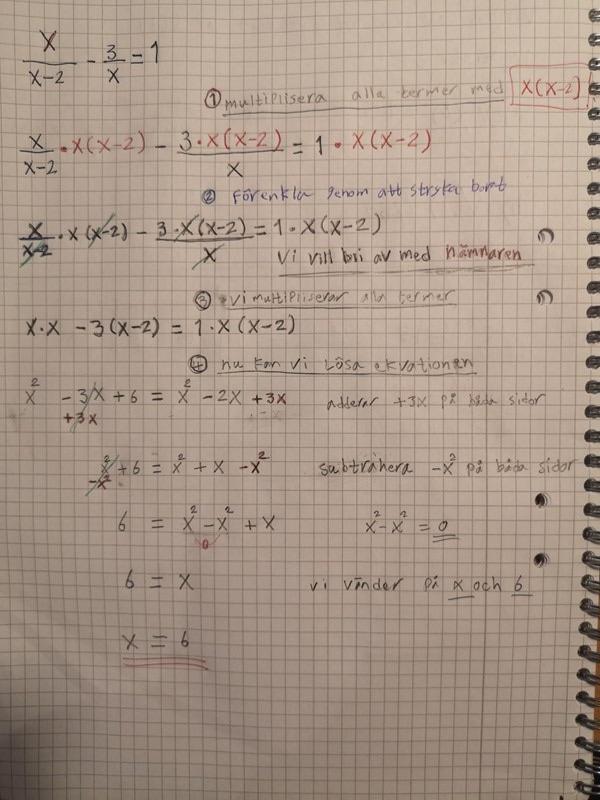 x/(x-2) - 3/x = 1
① multiplisera alla termer med x(x-2)
x/(x-2) · x(x-2) - 3·x(x-2)/x = 1 · x(x-2)
② Förenkla genom att stryka bort
x/(x-2) · x(x-2) - 3·x(x-2)/x = 1·x(x-2)
vi vill bri av med nämnaren
③ vi multipliserar alla termer
x·x - 3(x-2) = 1·x(x-2)
④ nu kan vi Lösa ekvationen
x² - 3x + 6 = x² - 2x + 3x adderar +3x på båda sidor
+3x
x² + 6 = x² + x - x² subtrahera -x² på båda sidor
-x²
6 = x² - x² + x x² - x² = 0
0
6 = x vi vänder på x och 6
x = 6